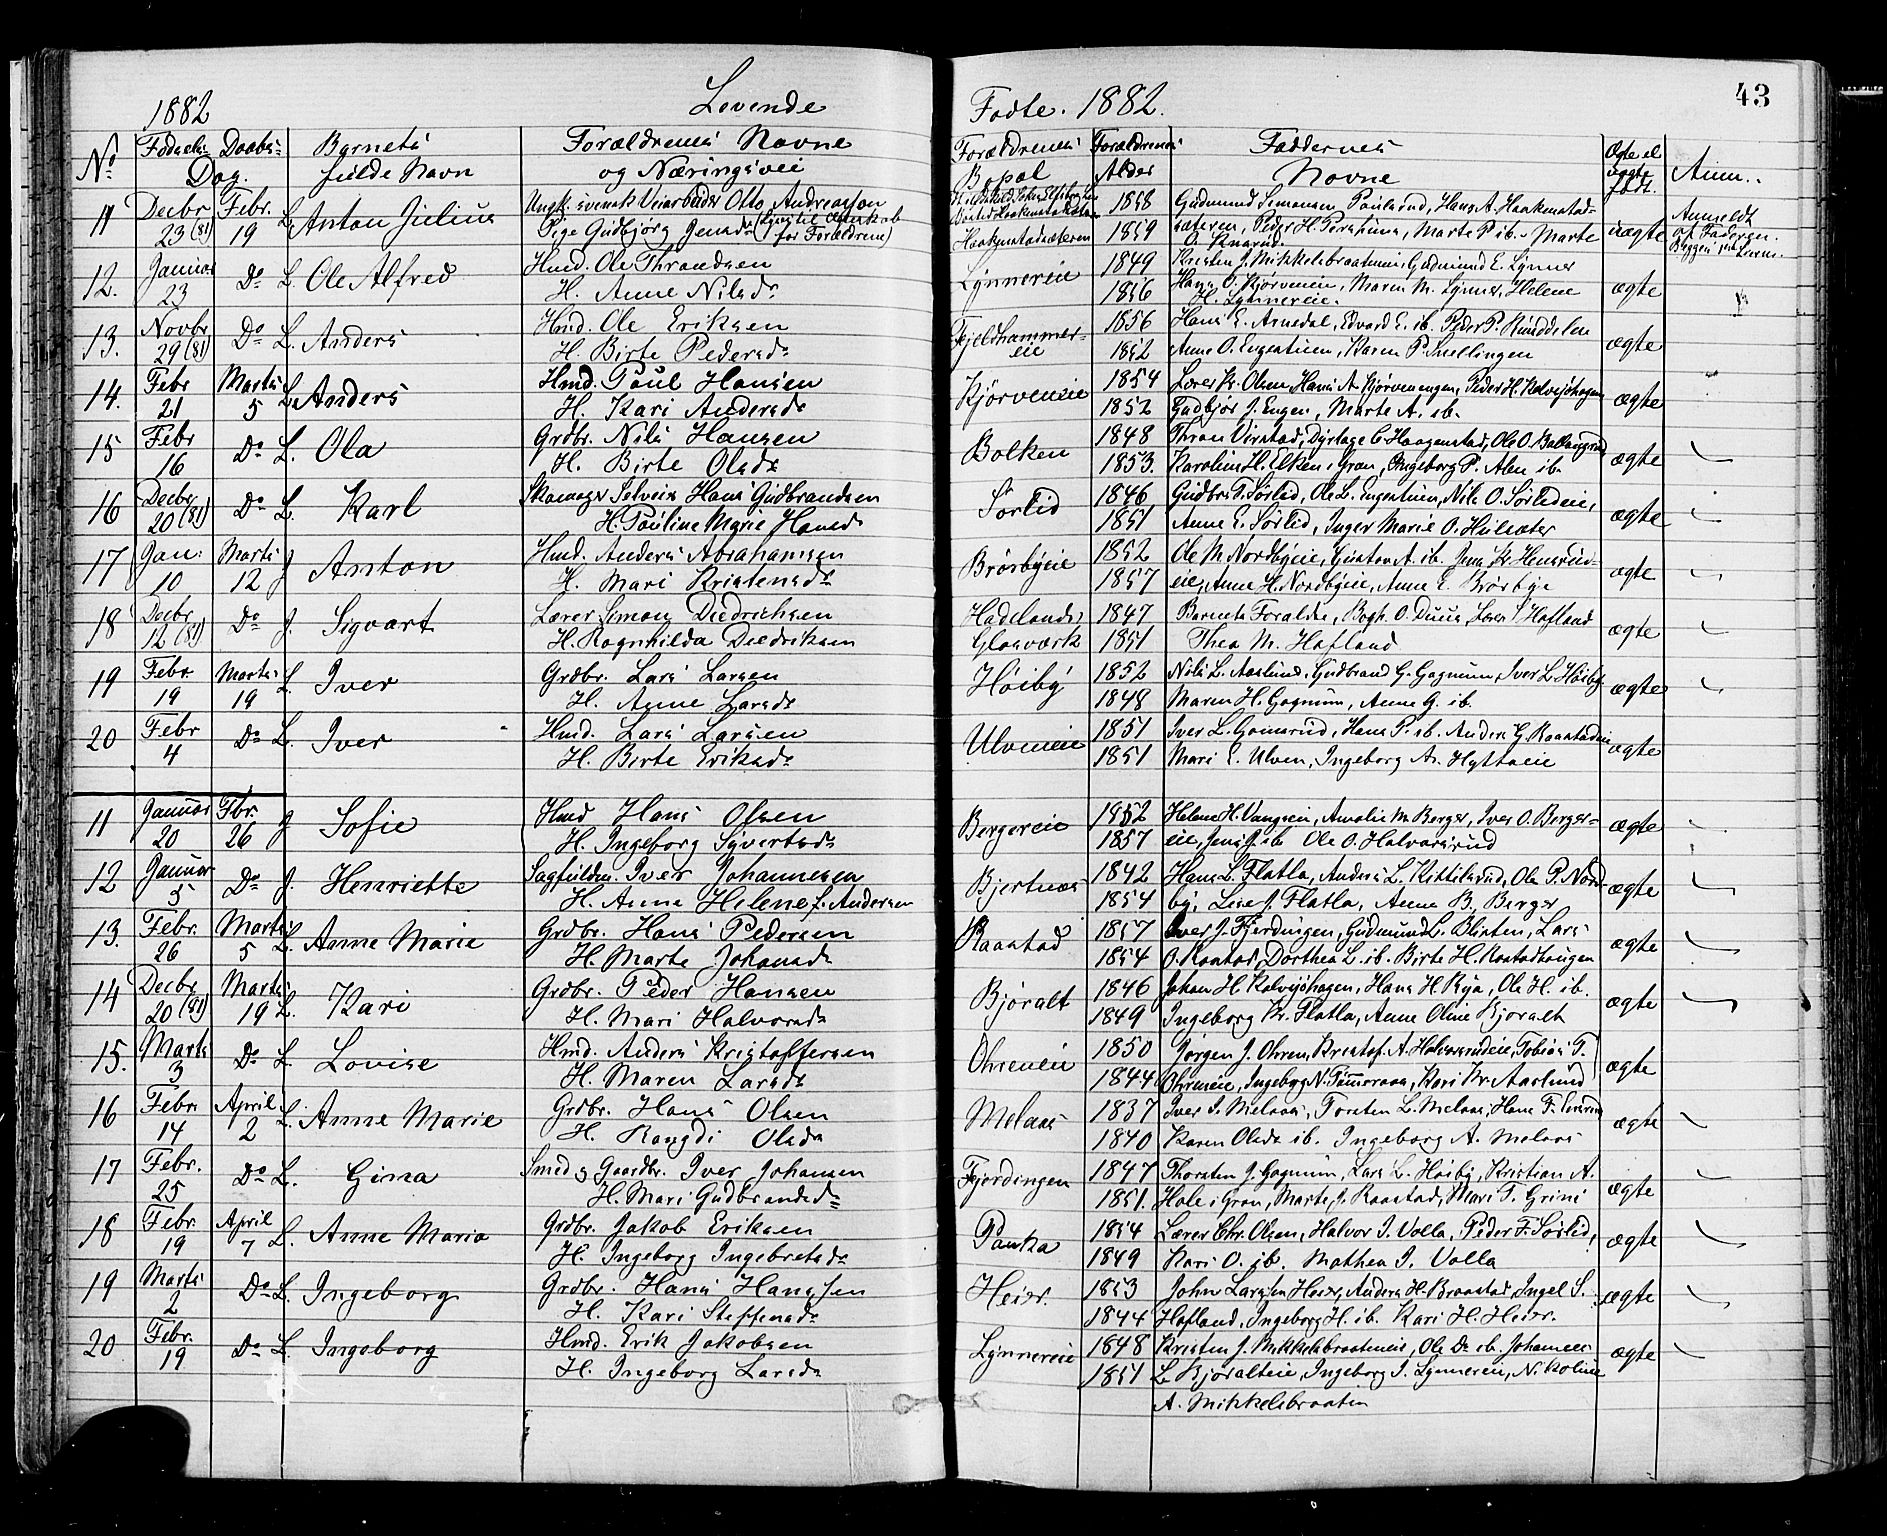 1882 Levende
No Fødsels- Daabs- Dag. Barnets fulde Navn Forældrenes Navne og Næringsvei
11 Decbr 23 (81) Febr. 19 L. Anton Julius Ungk. svensk Otto Andreasson
Pige Gudbjørg Jensdr
12. Januar 23 Do L. Ole Alfred Hmd. Ole Thrandsen
H. Anne Nilsdr
13. Novbr 29 (81) Do L. Anders Hmd. Ole Eriksen
H. Birte Pedersdr
14. Febr 21 Marts 5 L. Anders Hmd. Paul Hansen
H. Kari Andersdr
15 Febr 16 Do L. Ola Grdbr. Nils Hansen
H. Birte Olsdr
16 Decbr 20 (81) Do L. Karl Skomager Selveier Hans Gudbrandsen
H. Pauline Marie Hansdr
17 Jan: 10 Marts 12 J Anton Hmd. Anders Abrahamsen
H. Mari Kristensdr
18 Decbr 12 (81) Do J. Sigvart Lærer Simon Diedrichsen
H. Ragnhilda Diedriksen
19 Febr 19 Marts 19 L Iver Grdbr. Lars Larsen
H. Anne Larsdr
20 Febr 4 Do L. Iver Hmd. Lars Larsen
H. Berte Eriksdr
11 Januar 20 Fbr. 26 J Sofie Hmd Hans Olsen
H. Ingeborg Sivertsdr
12 Januar 5 Do J. Henriette Sagfuldm. Iver Johannesen
H. Anna Helene f. Andersen
13. Febr. 26 Marts 5 L. Anne Marie Grdbr. Hans Pedersen
H. Marte Johansdr
14 Decbr 20 (81) Marts 19 L. Kari Grdbr. Peder Hansen
H. Mari Halvorsdr
15. Marts 3 Do L. Lovise Hmd. Anders Kristoffersen
H. Maren Larsdr
16 Febr 14 April 2 L. Anne Marie Grdbr. Hans Olsen
H. Rangdi Olsdr
17 Febr. 25 Do L. Gina Smed og Gaardbr. Iver Johansen
H. Mari Gudbrandsdr
18 Febr. 19 April 7 L. Anne Maria Grdbr. Jakob Eriksen
H. Ingeborg Ingebretsdr
19 Marts 2 Do L. Ingeborg Grdbr. Hans Hanssen
H. Kari Steffensdr
20 Febr. 19 Do L. Ingeborg Hmd. Erik Jakobsen
H. Ingeborg Larsdr
Fødte. 1882. 43
Forældrenes Bopæl Forældrenes Alder Faddernes Navne Ægte el uægte født. Anm.
1858 Gudmund Simonsen Paulsrud, Hans A. Haakenstad-
Haakenstadsæteren 1859 sæteren, Peder H. Marte P. ib. Marte uægte Anmeldt af Faderen.
O. Knarud.
Lynnereie 1849 Kristen J. Mikkelsbraateneie, Gudmund E. Lynner
1856 Hans O. Kjørveneie, Maren M. Lynner, Helene ægte
H. Lynnereie.
Fjeldhammer- 1856 Hans E. Arnedal, Edvard E. ib. Peder P.
eie 1852 Anne O. Karen P. Snellingen ægte
Kjørveneie 1854 Lærer Kr. Olsen, Hans A. Kjørvenengen, Peder H. Kalvsjøhagen
1852 Gudbjør J. Engen, Marte A. ib. ægte
Bolken 1848 Thron Virstad, C. Haagenstad, Ole O. Ballangrud
1853. Karoline H. Elken i Gran, Ingeborg P. Alm ib. ægte
Sørlid 1846 Gudbr. T. Sørlid, Ole L. Nils O. Sørlideie,
1851 Anne E. Sørlid, Inger Marie O. Hulsæter ægte
Brørbyeie 1852 Ole M. Nordbyeie, Gustav A. ib. Jens Kr. Hensrud-
1857 eie, Anne H. Nordbyeie, Anne E. Brørbye ægte
Hadelands 1847 Barnets Forældre, Bogh. O. Duus, Lærer Hofland
Glasværk 1851 Thea M. Hofland ægte
Høiby 1852 Nils L. Aaslund, Gudbrand G. Gagnum, Iver L. Høiby
1848 Maren H. Gagnum, Anne G. ib. ægte
Ulveneie 1851 Iver L. Gamsrud, Hans P. ib. Anders G. Raastadeie
1851 Mari E. Ulven, Ingeborg A. Hyttaeie ægte
Bergereie 1852 Helene H. Vangseie, Amalie M. Berger, Iver O. Berger-
1857 eie, Jens J. ib Ole O. Halvorsrud ægte
Bjertnæs 1842 Hans L. Flatla, Anders L. Kittelsrud, Ole P. Nord-
1854 by, Lise J. Flatla, Anne B. Berger ægte
Raastad 1857 Iver J. Fjerdingen, Gudmund L. Olimten, Lars
1854 O. Raastad, Dorthea L. ib. Birte H. Raastadhaugen ægte
Bjøralt 1846 Johan H. Kalvsjøhagen, Hans H. Rya, Ole H. ib.
1849 Ingeborg Kr. Flatla, Anne Oline Bjøralt ægte
Ohreneie 1850 Jørgen J. Ohren, Kristof. A. Halvorsrudeie, Tobias T.
1844 Ohreneie, Ingeborg N. Kari Kr. Aaslund ægte
Melaas 1837 Iver I. Melaas, Torsten L. Melaas, Hans F.
1840 Karen Olsdr ib. Ingeborg A. Melaas ægte
Fjerdingen 1847 Thorsten J. Gagnum, Lars L. Høiby, Kristian A.
1851. Hole i Gran, Marte J. Raastad, Mari T. Grini ægte
Paaka 1854 Lærer Chr. Olsen, Halvor I. Volla, Peder F. Sørlid,
1849 Kari O. ib. Mathea I. Volla ægte
Heier. 1853 John Larsen Heier, Anders H. Braastad, Ingel S.
1844 Hofland, Ingeborg H. ib. Kari H. Heier. ægte
Lynnereie 1848 Kristen J. Mikkelsbraateneie, Ole Do ib. Johannes
1851 L. Bjøralteie, Ingeborg I. Lynnereie, Nikoline ægte
A. Mikkelsbraaten